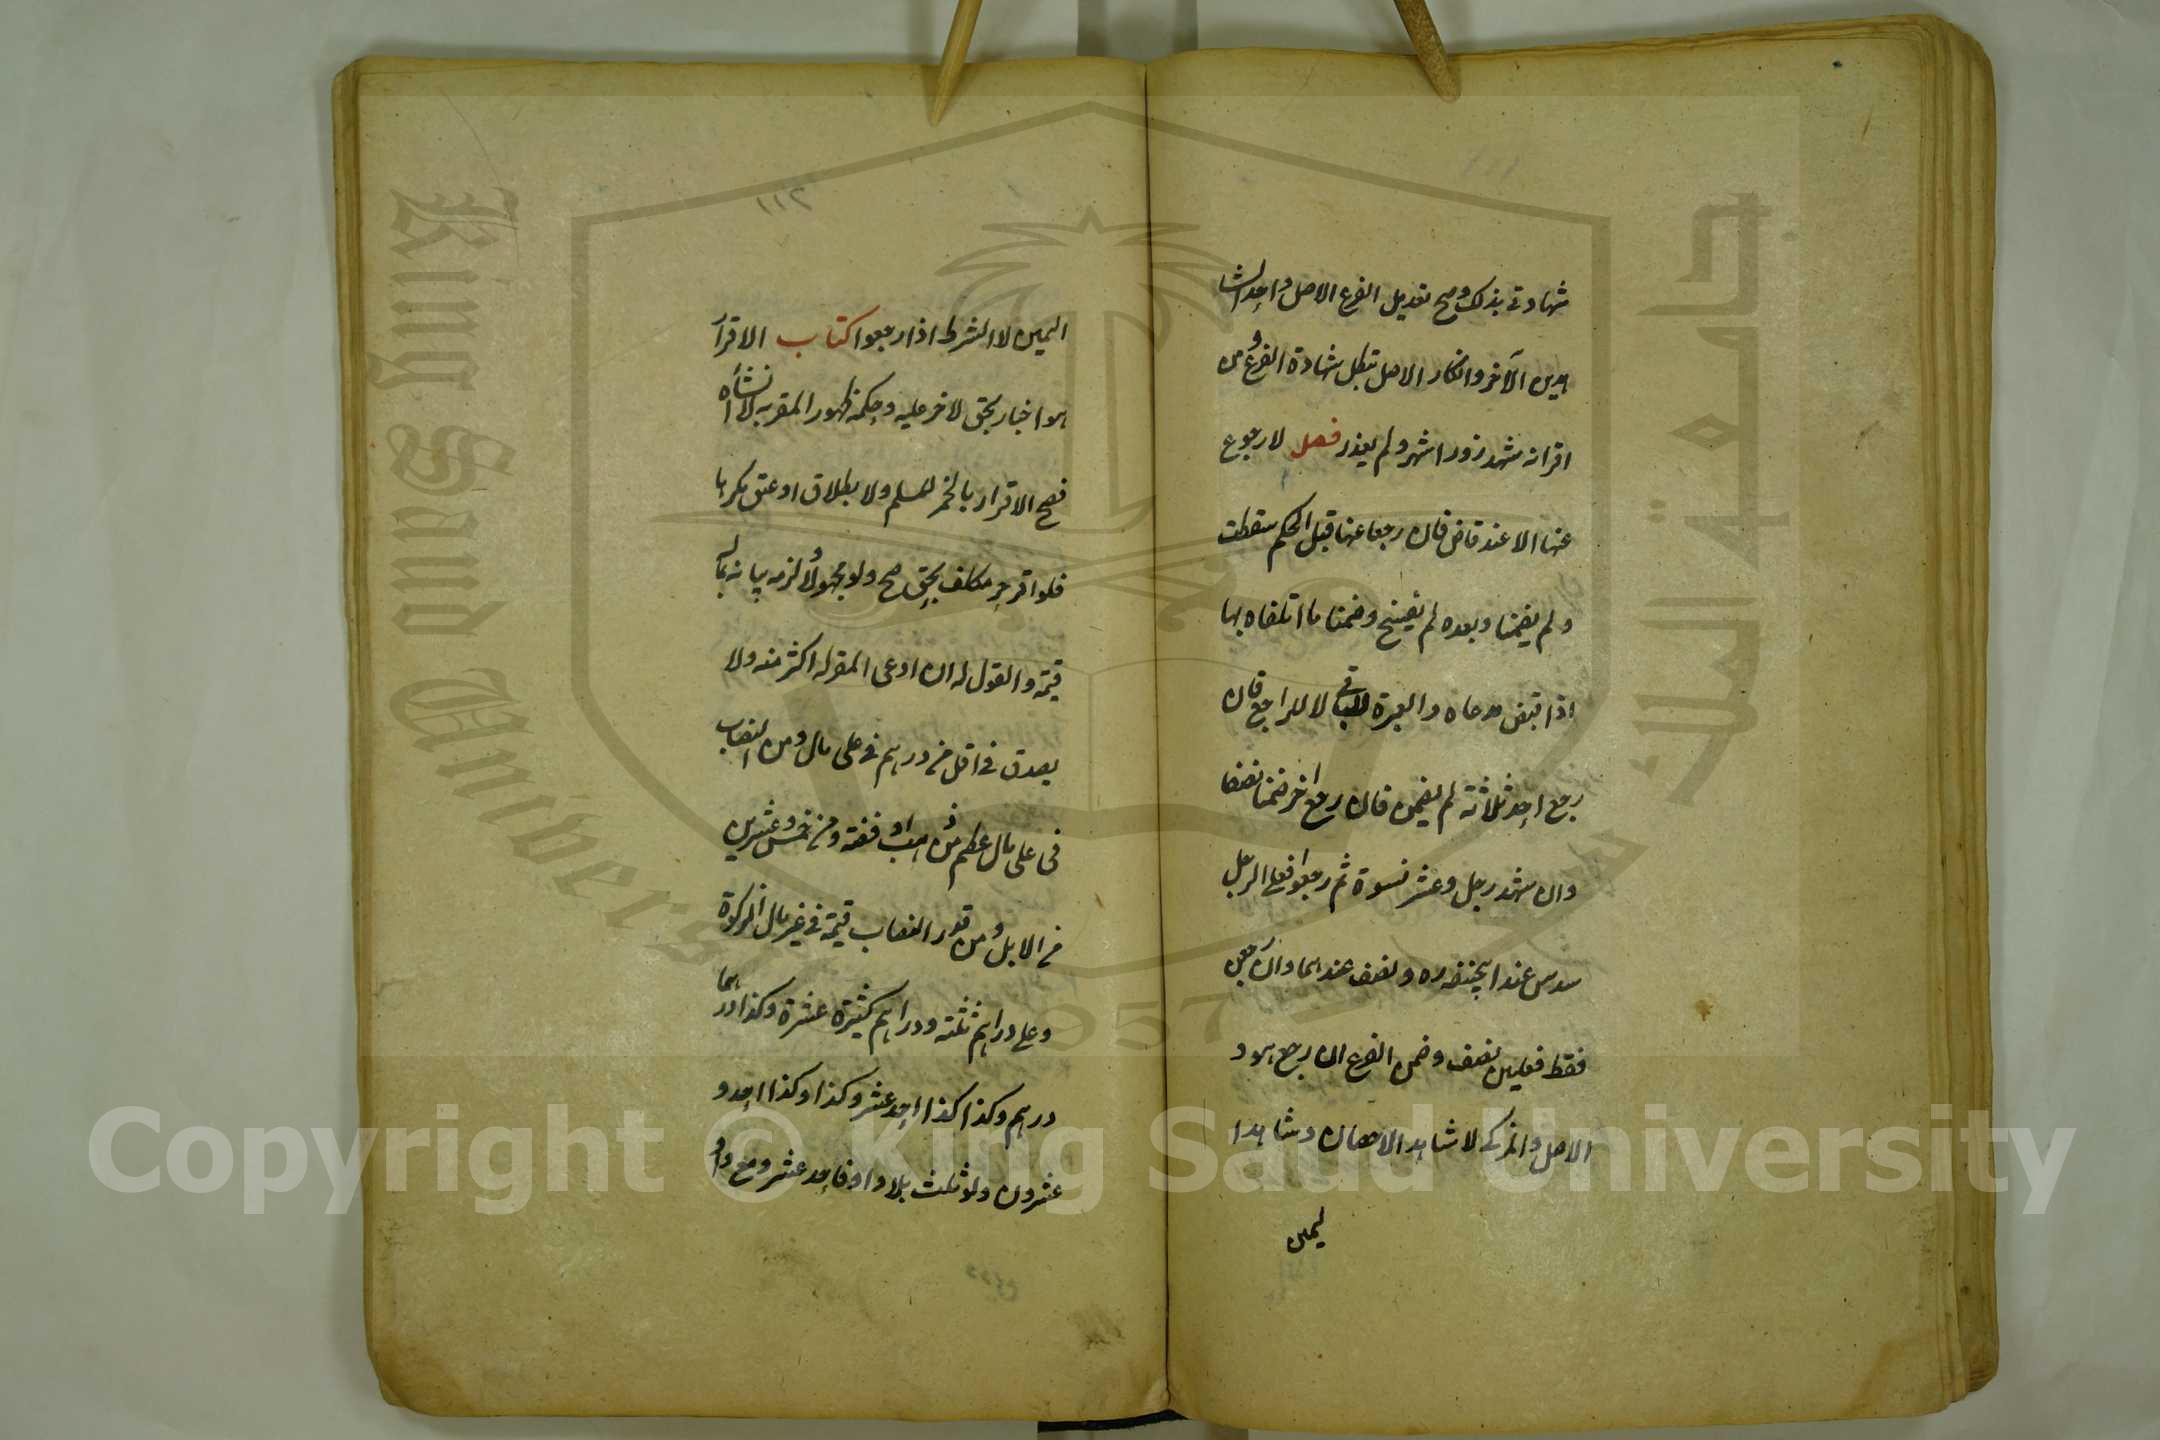 شهادتي بذلك وصح تعديل الفرع الاصل واحد الشا
هدين الآخر وانكار الاصل تبطل شهادة الفرع ومن
اقر انه شهد زورا شهر ولم يعذر فصل لا رجوع
عنها الا عند قاض فان رجعا عنها قبل الحكم سقطت
ولم يضمنا وبعده لم يفسخ وضمنا ما اتلفاه بها
اذا قبض مدعاه والعبرة للباقي لا للراجع فان
رجع احد ثلاثة لم يضمن فان رجع آخر ضمنا نصفا
وان شهد رجل وعشر نسوة ثم رجعوا فعلى الرجل
سدس عند ابيحنيفه ره ونصف عندهما وان رجعن
فقط فعليهن نصف وضمن الفرع ان رجع هو لا
الاصل والمزكى لا شاهد الاحصان وشاهدا
ليمين
٢١١
اليمين لا الشرط اذا رجعوا كتاب الاقرار
هو اخبار بحق لآخر عليه وحكمه ظهور المقر به لا انشاؤه
فصح الاقرار بالخمر للمسلم ولا بطلاق او عتق مكرها
فلو اقر حر مكلف بحق صح ولو مجهولا ولزمه بيانه بما له
قيمة والقول له ان ادعى المقر له اكثر منه ولا
يصدق في اقل من درهم في على مال ومن النصاب
في على مال عظيم من ذهب او فضة ومن خمس وعشرين
من الابل ومن قدر النصاب قيمة في غير مال الزكوة
وعلى دراهم ثلثة ودراهم كثيرة عشرة وكذا درهما
درهم وكذا كذا احد عشر وكذا وكذا احد و
عشرون ولو ثلث بلا واو فاحد عشر ومع واو